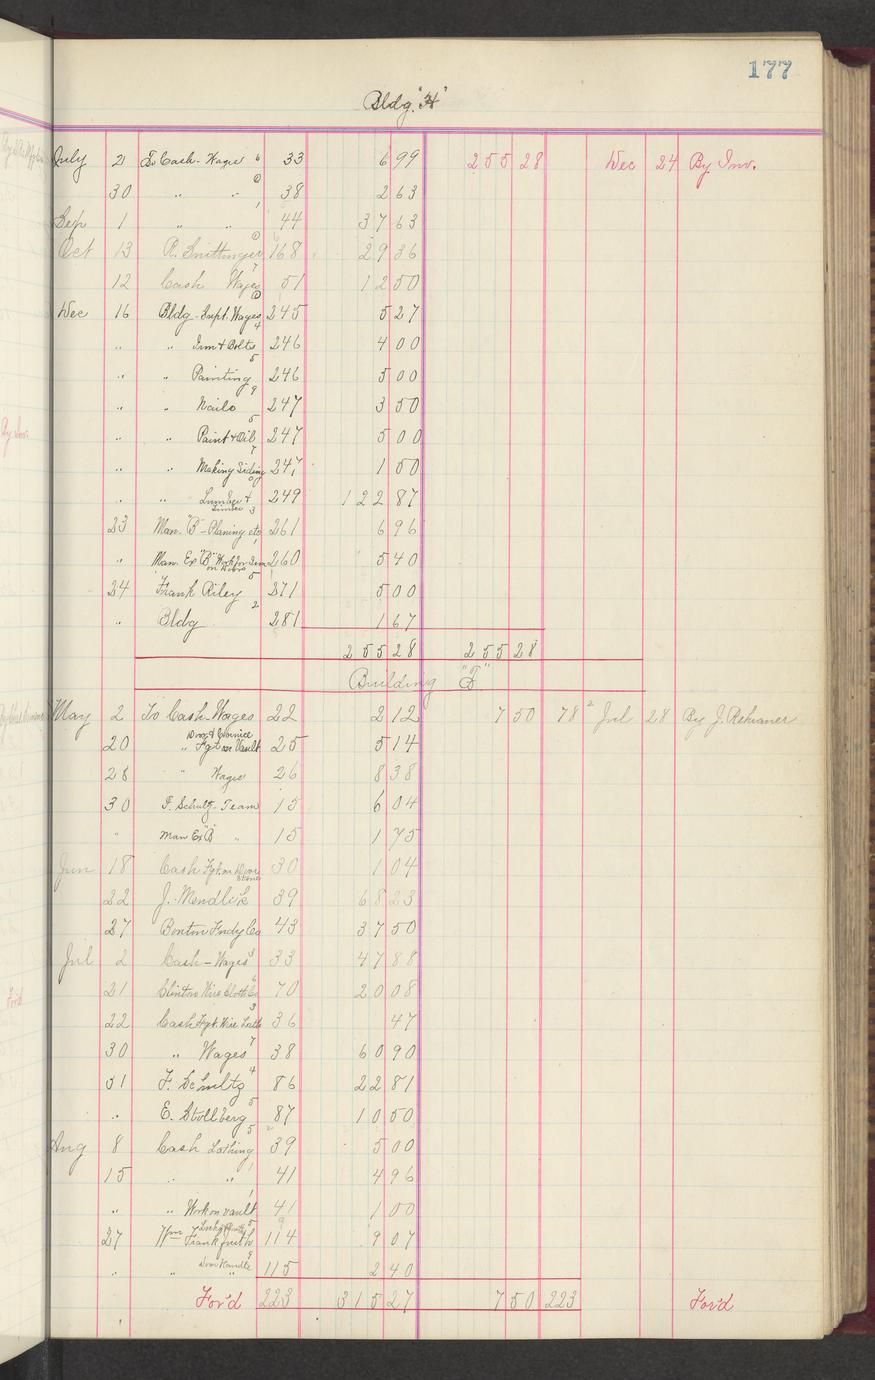 177
Bldg. "H"
July 21 To Cash - Wages 6 33 6 99 255 28 Dec 24 By Inv.
30 " " 38 2 63
Sep 1 " " 44 37 63
Oct 13 R. 168 29 36
12 Cash Wages 51 12 50
Dec 16 Bldg - Supt. Wages 245 5 27
" " Iron & Bolts 246 4 00
" " Painting 246 5 00
" " Nails 247 3 50
" " Paint & Oil 247 5 00
" " Making Siding 247 1 50
" " Lumber & Timber 249 122 87
23 Man. "B" - Planing etc 261 6 96
" Man. Ex "B" Work on Doors 260 5 40
24 Frank Riley 271 5 00
" Bldg 281 1 67
255 28 255 28
Building
May 2 To Cash - Wages 22 2 12 7 50 78 Jul 28 By J.
20 " Fgt on Vault 25 5 14
28 " Wages 26 8 38
30 F. Schultz - Team 15 6 04
" Man Ex "B" " 15 1 75
Jun 18 Cash Fgt. on Stone 30 1 04
22 J. Mendlik 39 68 23
27 Benton Fndy Co 43 37 50
Jul 2 Cash - Wages 33 47 88
21 Clinton Wire Cloth Co 70 20 08
22 Cash Fgt. Wire Lath 36 47
30 " Wages 38 60 90
31 F. Schultz 86 22 81
" E. Stollberg 87 10 50
Aug 8 Cash Lathing 39 5 00
15 " " 41 4 96
" " Work on Vault 41 1 00
27 Wm Frank Smith 114 9 07
" " Door Handle 115 2 40
For'd 223 315 27 7 50 223 For'd